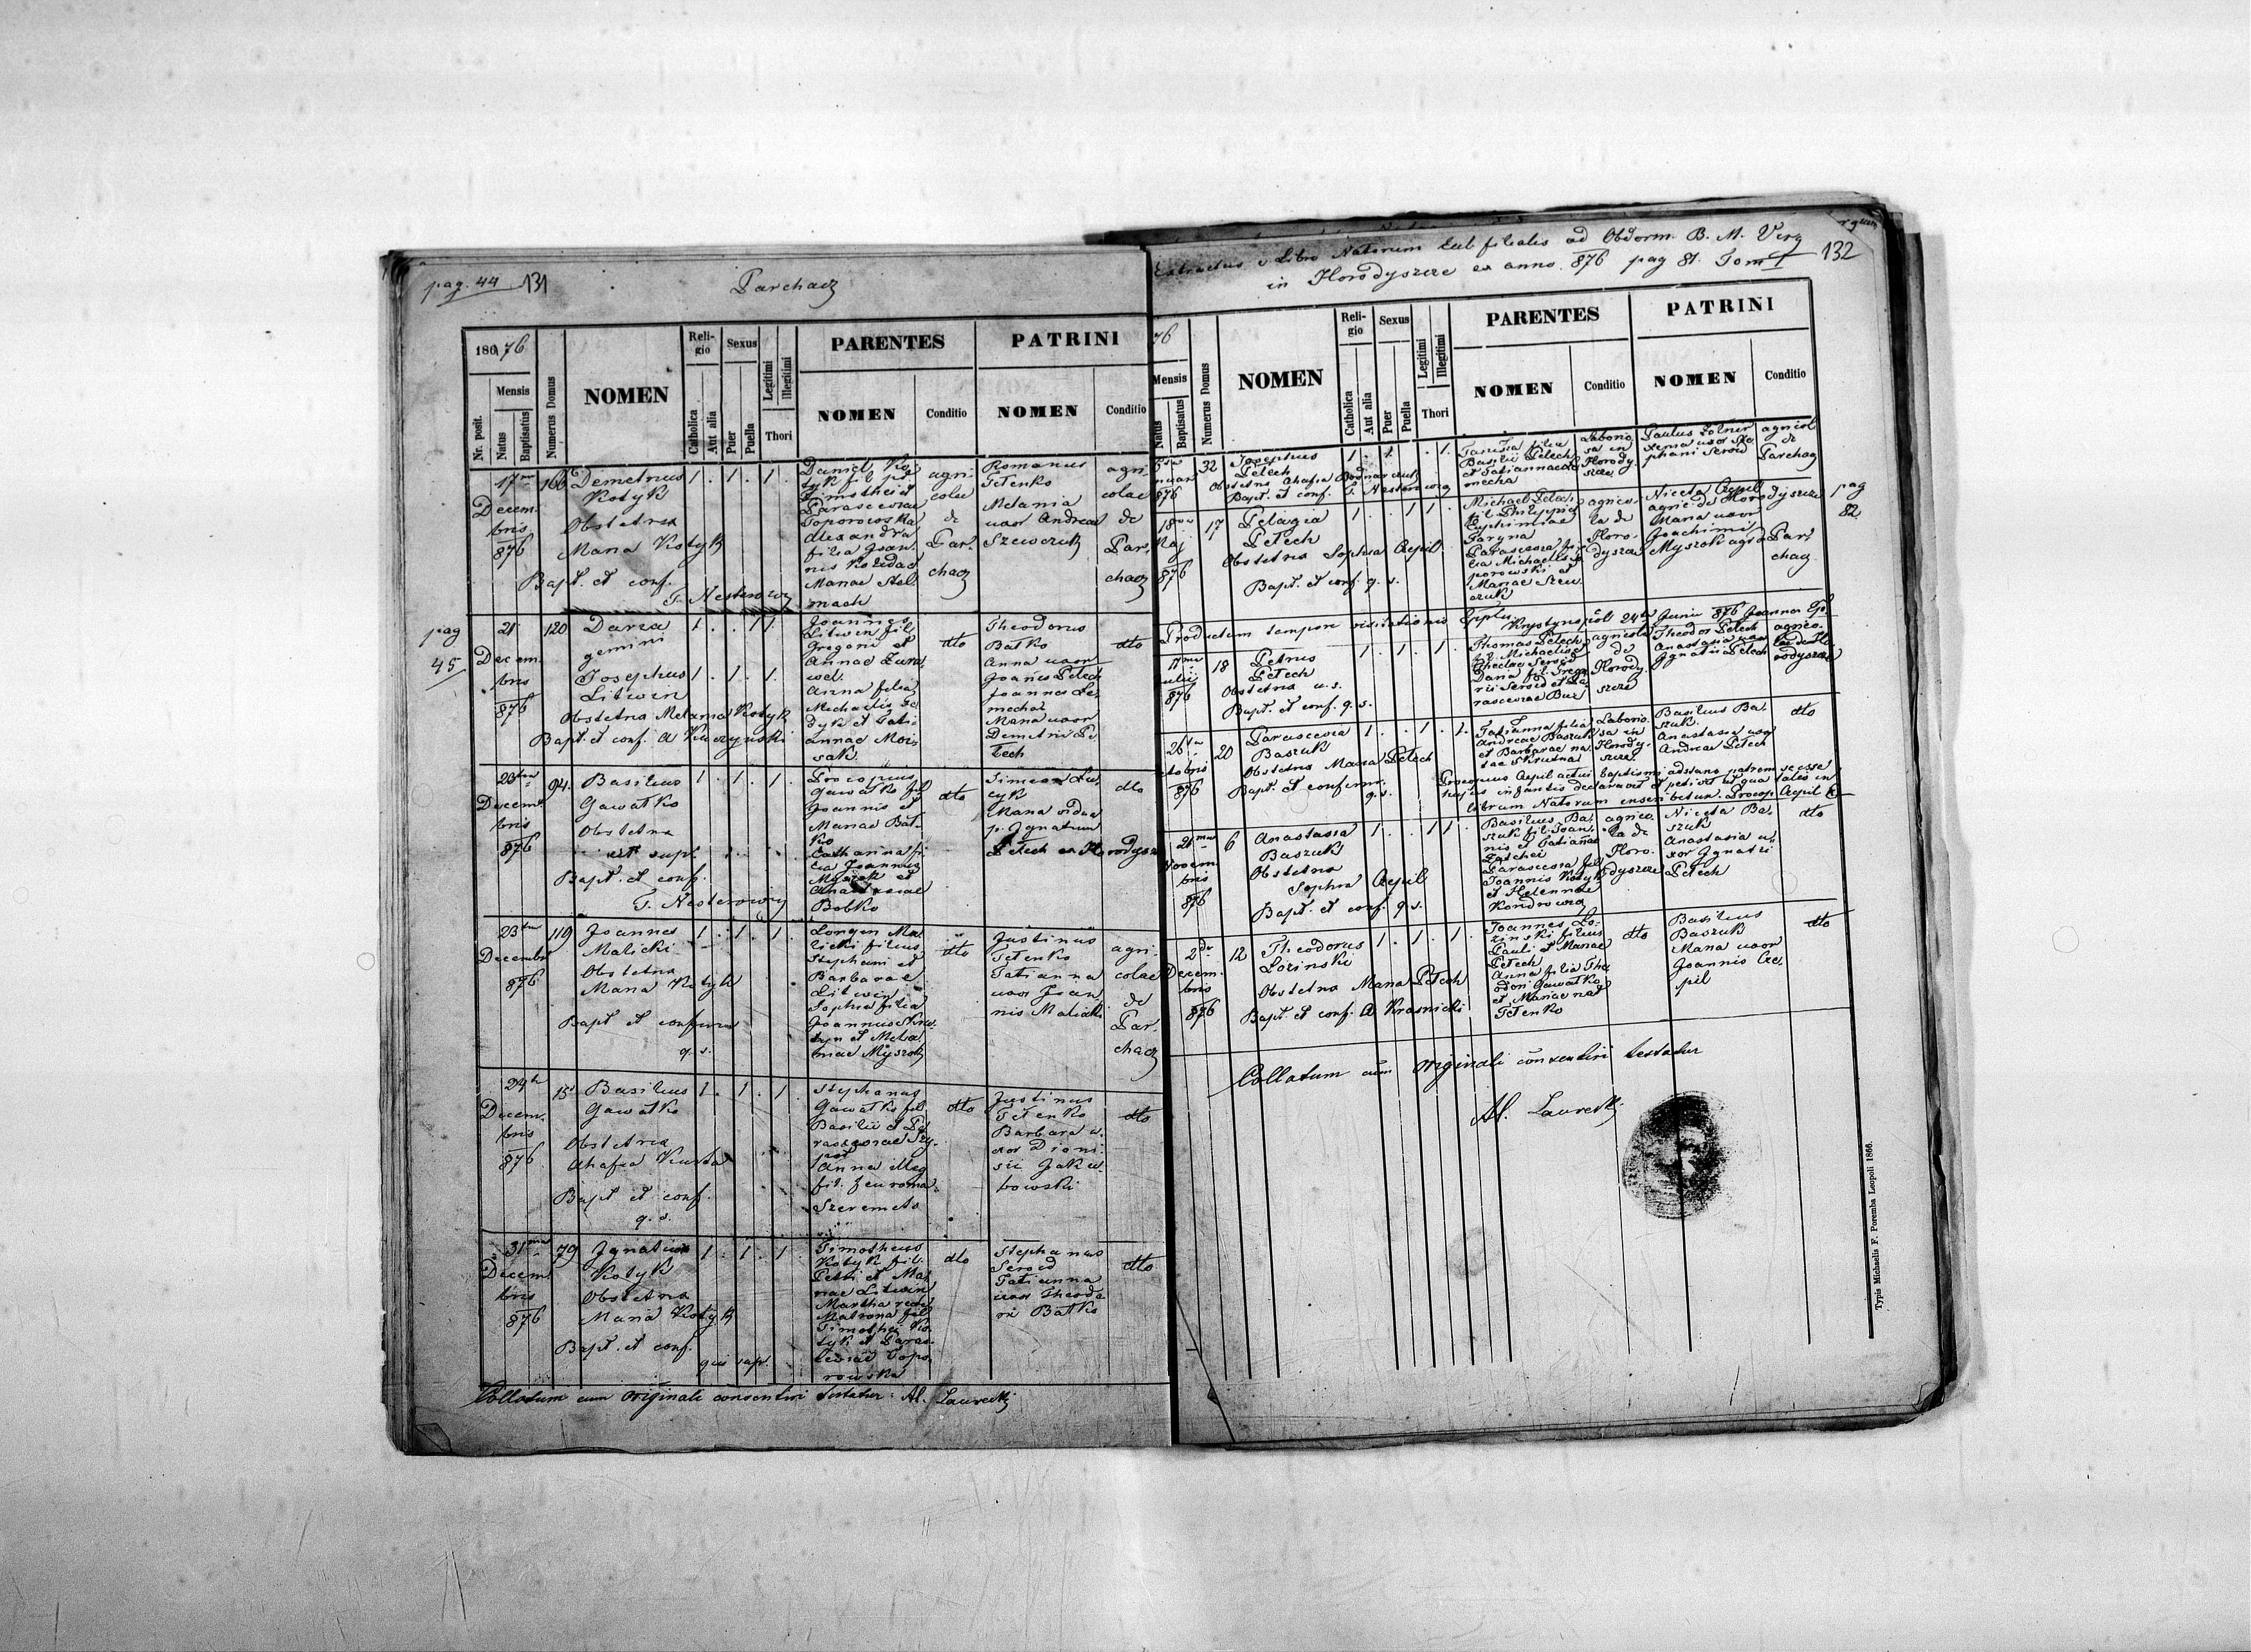 pag. 44 131
Parchacz
186 76
Nr. posit.
Mensis
Natus
Baptisatus
Numerus Domus
NOMEN
Religio
Catholica
Aut alia
Sexus
Puer
Puella
Legitimi
Illegitimi
Thori
PARENTES
NOMEN
Conditio
PATRINI
NOMEN
Conditio
17
Decem
bris
876
166
Demetrius
Kotyk
Obstetrix
Maria Kotyk
Bapt. et conf.
T. Nesterowicz
1 . 1 . 1 .
Daniel Ko
tyk fil
Timothei et
Parasceviae
Toporowska
Alexandra
filia Joan
nis
Mariae Stel
mach
agri
colae
de
Par
chacz
Romanus
Tetenko
Melania
uxor Andreae
Szewczuk
agri
colae
de
Par.
chacz
pag
45
21
Decem
bris
876
120
Daria
gemini
Josephus
Litwin
Obstetrix Melania Kotyk
Bapt. et conf. A Kuczynski
1 . . 1 1 .
1 . 1 . 1 .
Joannes
Litwin fil
Gregorii et
Annae Zura
wel.
Anna filia
Michaelis Fe
dyk et Tati
annae Moi
sak.
dto
Theodorus
Batko
Anna uxor
Joannis Petech
Joannes Le
mecha
Maria uxor
Demetrii Pe
tech
dto
23
Decem
bris
876
94.
Basilius
Gawatko
Obstetrix
ut supl
Bapt. et conf.
T. Nesterowicz
1 . 1 . 1 .
Procopius
Gawatko fil
Joannis et
Mariae Bat
ko
Catharina fi
lia Joannis
Myszok et
Anastasiae
Bobko
dto
Simeon Lu
cyk
Maria vidua
p. Ignatium
Petech ex Horodyszcze
dto
23
Decembr
876
119
Joannes
Malicki
Obstetrix
Maria Kotyk
Bapt et confirm
q. s.
1 . 1 . 1 .
Longin Ma
licki filius
Stephani et
Barbarae
Litwin
Sophia filia
Joannis
et Mela
niae Myszok
dto
Justinus
Tetenko
Tatianna
uxor Joan
nis Malicki
agri
colae
de
Par
chacz
24
Decem.
bris
876
15
Basilius
Gawatko
Obstetrix
Ahafia
Bapt et conf.
q. s.
1 . 1 . 1
Stephanus
Gawatko fil
Basilii et Pa
rasceviae
Anna illeg
fil.
Szeremeta
dto
Justinus
Tetenko
Barbara u.
xor Dioni
sii Jaku
bowski
dto
31
Decem
bris
876
79
Ignatius
Kotyk
Obstetrix
Maria Kotyk
Bapt. et conf.
qui sup.
1 . 1 . 1
Timotheus
Kotyk fil.
Petri et Ma
riae Litwin
Martha
Matrona fil
Timothei Ko
tyk et Paras
ceviae Topo
rowska
dto
Stephanus
Seroid
Tatianna
uxor Theodo
ri Batko
dto
Collatum cum originali consentiri testatur: Al. Laurecki
Extractus e Libro Natorum Eccl filialis ad Obdorm. B. M. Virg
in Horodyszcze ex anno 876 pag 81. Tom I
132
76
Mensis
Natus
Baptisatus
Numerus Domus
NOMEN
Religio
Catholica
Aut alia
Sexus
Puer
Puella
Legitimi
Illegitimi
Thori
PARENTES
NOMEN
Conditio
PATRINI
NOMEN
Conditio
nuar
876
32
Josephus
Petech
Obstetrix Ahafia Bodnarczuk
Bapt. et conf. T. Nesterowicz
1 . 1 . . 1.
filia
Basilii Petech
et Tatiannae Le
mecha
Laborio
sa in
Horody
szcze
Paulus
Xenia uxor Ste
phani Seroid
agricol
de
Parchacz
18
Maj
876
17
Pelagia
Petech
Obstetrix Sophia Czepil
Bapt. et conf. q. s.
1 . . 1 1 .
Michael Petech
fil. Philippi et
Euphimiae
Haryna
Parascevia fi
lia Michaelis To
porowski et
Mariae Szew
czuk
agrico
la de
Horo
dyszcze
Niceta Czepil
agric de Horodyszcze
Maria uxor
Joachimi
Myszok agr de Par
chacz
pag
82
Productum tempore visitationis Eppli Krystynopoli 24 Junii 876 Joannes Ep
17
Julii
876
18
Petrus
Petech
Obstetrix u. s.
Bapt. et conf. q. s.
1 . 1 . 1 .
Thomas Petech
fil. Michaelis et
Theclae Seroid
Daria fil. Grego
rii Seroid et Pa
rasceviae Buc
agricola
de
Horody
szcze
Theodor Petech
Anastasia uxor
Ignatii Petech
agrico
lae de Ho
rodyszcze
26
ctobris
876
20
Parascevia
Baszuk
Obstetrix Maria Petech
Bapt. et confirm.
q. s.
1 . . 1 . 1.
Tatianna filia
Andreae Baszuk
et Barbarae na
tae Skrutna
Laborio
sa in
Horody
szcze
Basilius Ba
szuk.
Anastasia uxor
Andreae Petech
dto
Procopius Czepil actui baptismi adstans patrem se esse
hujus infantis declaravit et petivit ut qua talis in
librum Natorum inscribetur. Procop Czepil
21
Novem
bris
876
6
Anastasia
Baszuk
Obstetrix
Sophia Czepil
Bapt. et conf. q. s.
1 . . 1 1 .
Basilius Ba
szuk fil. Joan
nis et Tatiannae
Parascevia fil
Joannis Kotyk
et Helennae
Kondrowicz
agrico
la de
Horo
dyszcze
Niceta Ba
szuk
Anastasia u
xor Ignatii
Petech
dto
2
Decem
bris
876
12
Theodorus
Lozinski
Obstetrix Maria Petech
Bapt. et conf. A Krasnicki
1 . 1 . 1 .
Joannes Lo
zinski filius
Pauli et Mariae
Petech
Anna filia The
odori Gawatko
et Mariae nat
Tetenko
dto
Basilius
Baszuk
Maria uxor
Joannis Cze
pil
dto
Collatum cum originali consentiri testatur
Al. Laurecki
Typis Michaelis F. Poremba Leopoli 1866.